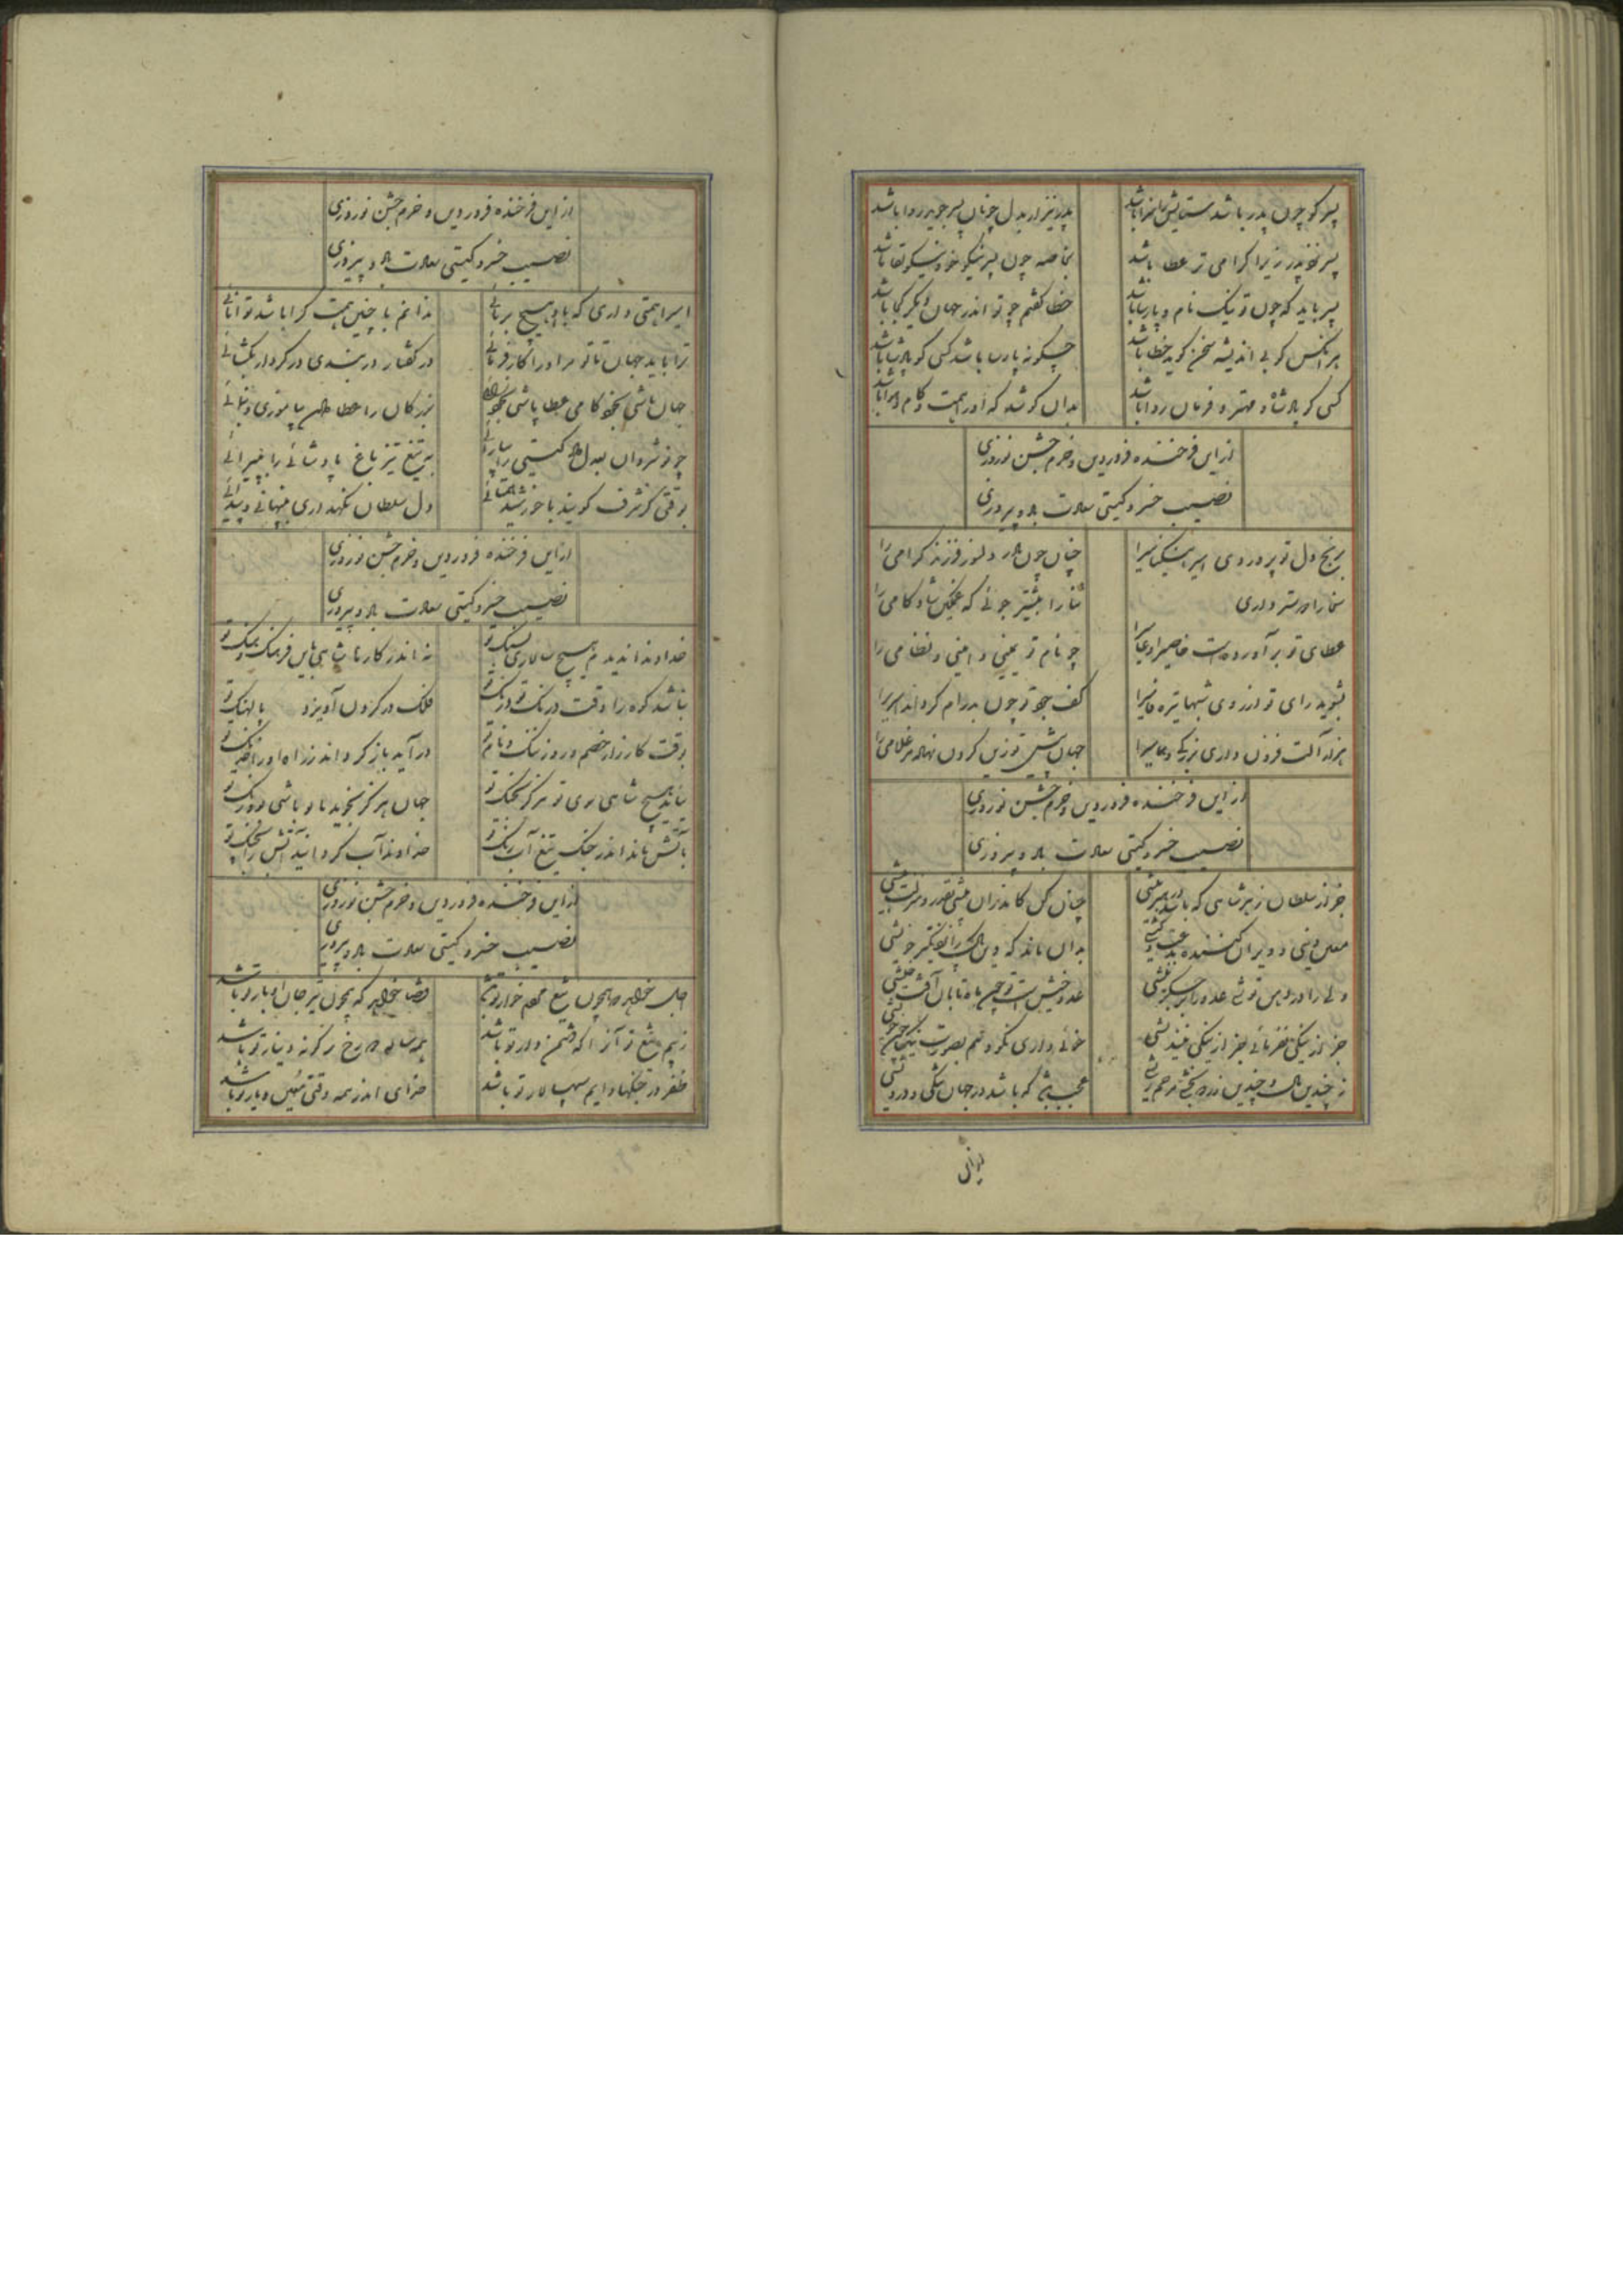 پسر کو چون پدر باشد ستایش را سزا باشد پدر نیز از بدل چونان پسر جوید روا باشد
پسر نزد پدر زیرا گرامی تر عطا باشد بخاصه چون پسر نیکو خو و نیکو لقا باشد
پسر باید که چون تو نیک نام و پارسا باشد خطا گفتم چو تو اندر جهان دیگر کجا باشد
هر آنکس کو بی اندیشه سخن گوید خطا باشد چگونه پارسا باشد کسی کو پادشا باشد
کسی کو پادشاه و مهتر و فرمان روا باشد بدان کوشد که او را همت و کام و هوا باشد
ازین فرخنده فروردین و خرم جشن نوروزی
نصیب خسرو گیتی سعادت باد و پیروزی
برنج دل تو پروردی امیرا نیکنامیرا چنان چون مادر دلسوز فرزند گرامی را
سخا را دوستر داری ثنا را بیشتر جوئی که غمگین شادکامی را
عطای تو برآورده است خاصیرا و عامیرا چو نام تو یمینی و امینی و نظامی را
بشوید رای تو از روی شبها تیره فامیرا کف جود تو چون بدرام گرداند
هزار آلت فزون داری بزرگی و همامیرا جهان پیش تو زین کردن نهاده مر غلامی را
ازین فرخنده فروردین و خرم جشن نوروزی
نصیب خسرو گیتی سعادت باد و پیروزی
جز از سلطان ز هر شاهی که باشد در هنر بیشی چنان کل کاندران بیشی بقدر و منزلت بیشی
معین دینی و ویران کننده بدعت و کیشی بدان ماند که دین را
ولی را دوردین نوشی عدو را بر جگر نیشی عدو خیش است و تو چون ماه تابان آفت خیشی
جز از نیکی نفرمائی بجز از نیکی نیندیشی خوئی داری نکو و هم بصورت
نه چندین ملک و چندین زر ببخشی عجب باشد گر باشد در جهان تنگی و درویشی
ازین فرخنده فروردین و خرم جشن نوروزی
نصیب خسرو گیتی سعادت باد و پیروزی
امیرا همتی داری که با او هیچ برنائی ندانم با چنین همت کرا باشد توانائی
ترا باید جهان تا تو مر او را کار فرمائی در گفتار در بندی در کردار بگشائی
جهان باشی بخوکامی عطا پاشی بزرگان را عطا دادن بیاموزی و بنمائی
چو نوشروان بعدل اندر گیتی را بیارائی بتیغ تیز باغ پادشائی را بپیرائی
بوقتی کز شرف گویند با خورشید همتائی دل سلطان نگهداری بپنهانی و پیدائی
ازین فرخنده فروردین و خرم جشن نوروزی
نصیب خسرو گیتی سعادت باد و پیروزی
خداوندا ندیدم هیچ سالاری بسنگ تو نه اندر کارها شاهی باین فرهنگ و هنگ تو
نباشد کوه را وقت درنگ تو درنگ تو فلک در گردون آویزد پالهنگ تو
بوقت کارزار خصم و روز ننگ و نام تو درآید باز گرداند ز راه او را خدنگ تو
نیاید هیچ شاهی سوی تو هرگز بجنگ تو جهان هرگز نجوید نام و باشی تو و ننگ تو
بآتش ماند اندر جنگ تیغ آب رنگ تو خداوند آب گرداند آتش را بچنگ تو
ازین فرخنده فروردین و خرم جشن نوروزی
نصیب خسرو گیتی سعادت باد و پیروزی
اجل خواهد که همچون تیغ تو خونخوار تو باشد قضا خواهد که همچون تیر جان اوبار تو باشد
ز بیم تیغ تو آنرا که دشمن وار تو باشد همه ساله دو رخ بر گونه دینار تو باشد
ظفر در جنگها دایم سپهسالار تو باشد خدای اندر همه وقتی معین و یار تو باشد